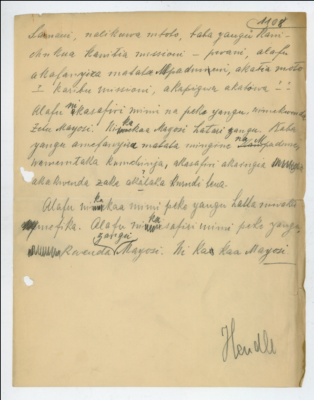 1108
Zamani, nalikuwa mtoto, baba yangu kani-
chukua kanitia missioni – pwani, alafu
akafanyiza matata Mpadwani, akatia moto
! Kanhu missioni, akapigwa akatowa !!
Alafu nikasafiri mimi na peke yangu,
Zetu Mayosi. Nikakaa Mayosi hatari yangu. Baba
yangu amefanyiza matata mingine na Mpadwani,
wamemtaka kumchinja, akasafiri akaringia
akakwenda zake akitaka kurudi tena.
Alafu nikakaa mimi peke yangu hatta mwaka
umefika. Alafu nikasafiri mimi peke yangu,
yangu
kwenda Mayosi. Nikakaa Mayosi
Hendle